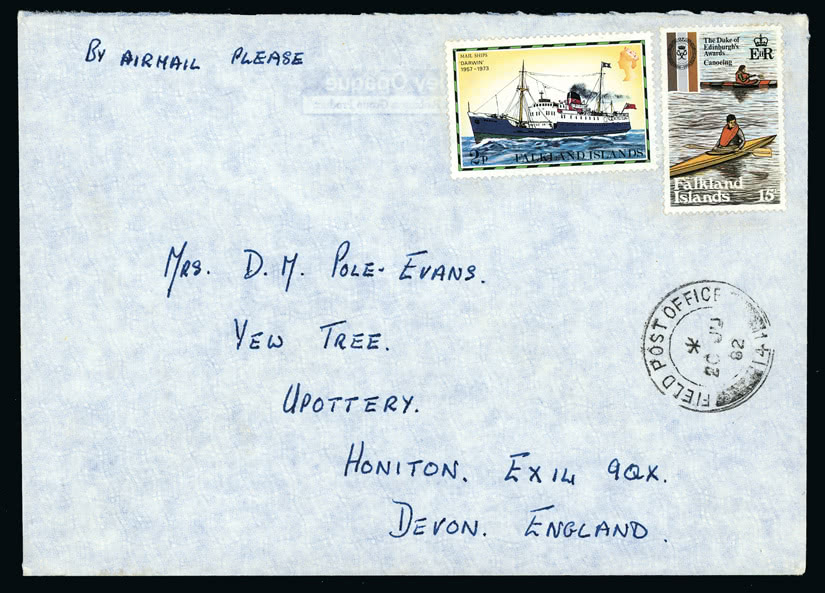 By AIRMAIL PLEASE
MAIL SHIPS
'DARWIN'
1957-1973
2½P FALKLAND ISLANDS
The Duke of
Edinburgh's
Awards
Canoeing
EIIR
Falkland
Islands 15p
MRS. D. M. POLE-EVANS.
YEW TREE.
UPOTTERY.
HONITON. EX14 9QX.
DEVON. ENGLAND.
FIELD POST OFFICE
* 20 JU
82
141